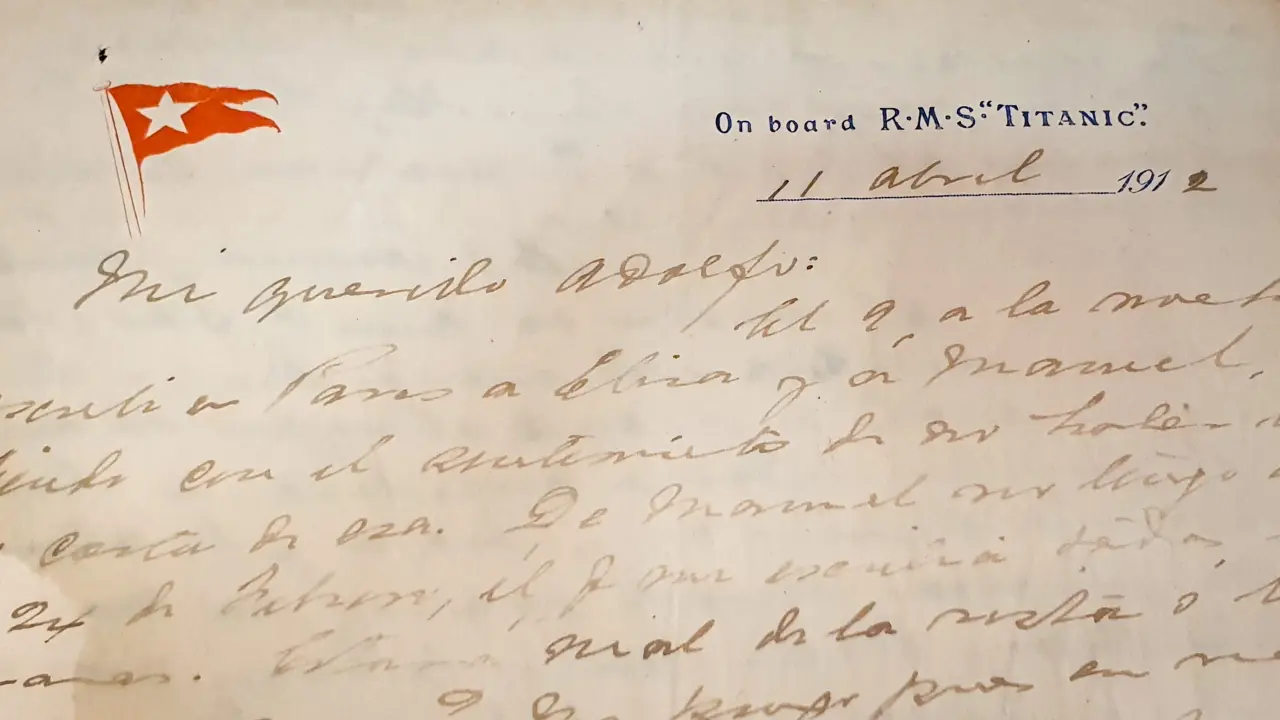 On board R·M·S· "TITANIC".
11 abril 1912
Mi querido Adolfo:
El 9, a la noche
escribi en Paris a Elisa y á Manuel,
con el sentimiento de no haber
carta de esa. De Manuel no tengo
24 de Febrero, él q me escribia todas
mal de la vista ó
pues en